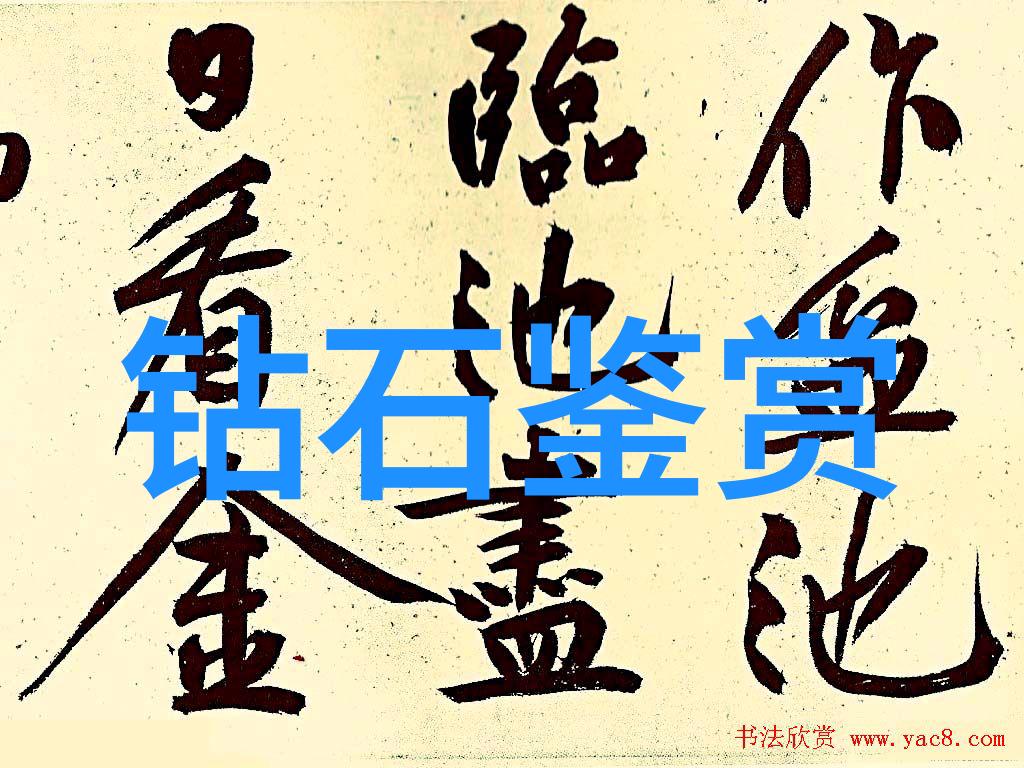 作盆池
臨池盡
日看金
钻石鉴赏
书法欣赏 www.yac8.com